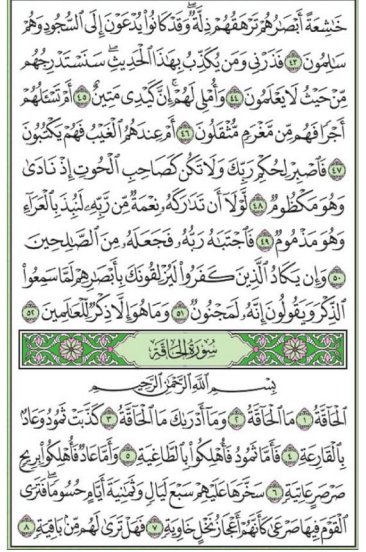 خَٰشِعَةً أَبْصَٰرُهُمْ تَرْهَقُهُمْ ذِلَّةٌ ۖ وَقَدْ كَانُوا۟ يُدْعَوْنَ إِلَى ٱلسُّجُودِ وَهُمْ
سَٰلِمُونَ ٤٣ فَذَرْنِى وَمَن يُكَذِّبُ بِهَٰذَا ٱلْحَدِيثِ ۖ سَنَسْتَدْرِجُهُم
مِّنْ حَيْثُ لَا يَعْلَمُونَ ٤٤ وَأُمْلِى لَهُمْ ۚ إِنَّ كَيْدِى مَتِينٌ ٤٥ أَمْ تَسْـَٔلُهُمْ
أَجْرًا فَهُم مِّن مَّغْرَمٍ مُّثْقَلُونَ ٤٦ أَمْ عِندَهُمُ ٱلْغَيْبُ فَهُمْ يَكْتُبُونَ
٤٧ فَٱصْبِرْ لِحُكْمِ رَبِّكَ وَلَا تَكُن كَصَاحِبِ ٱلْحُوتِ إِذْ نَادَىٰ
وَهُوَ مَكْظُومٌ ٤٨ لَّوْلَآ أَن تَدَٰرَكَهُۥ نِعْمَةٌ مِّن رَّبِّهِۦ لَنُبِذَ بِٱلْعَرَآءِ
وَهُوَ مَذْمُومٌ ٤٩ فَٱجْتَبَٰهُ رَبُّهُۥ فَجَعَلَهُۥ مِنَ ٱلصَّٰلِحِينَ
٥٠ وَإِن يَكَادُ ٱلَّذِينَ كَفَرُوا۟ لَيُزْلِقُونَكَ بِأَبْصَٰرِهِمْ لَمَّا سَمِعُوا۟
ٱلذِّكْرَ وَيَقُولُونَ إِنَّهُۥ لَمَجْنُونٌ ٥١ وَمَا هُوَ إِلَّا ذِكْرٌ لِّلْعَٰلَمِينَ ٥٢
سُورَةُ الْحَاقَّةِ
بِسْمِ ٱللَّهِ ٱلرَّحْمَٰنِ ٱلرَّحِيمِ
ٱلْحَآقَّةُ ١ مَا ٱلْحَآقَّةُ ٢ وَمَآ أَدْرَىٰكَ مَا ٱلْحَآقَّةُ ٣ كَذَّبَتْ ثَمُودُ وَعَادٌۢ
بِٱلْقَارِعَةِ ٤ فَأَمَّا ثَمُودُ فَأُهْلِكُوا۟ بِٱلطَّاغِيَةِ ٥ وَأَمَّا عَادٌ فَأُهْلِكُوا۟ بِرِيحٍ
صَرْصَرٍ عَاتِيَةٍ ٦ سَخَّرَهَا عَلَيْهِمْ سَبْعَ لَيَالٍ وَثَمَٰنِيَةَ أَيَّامٍ حُسُومًا فَتَرَى
ٱلْقَوْمَ فِيهَا صَرْعَىٰ كَأَنَّهُمْ أَعْجَازُ نَخْلٍ خَاوِيَةٍ ٧ فَهَلْ تَرَىٰ لَهُم مِّنۢ بَاقِيَةٍ ٨